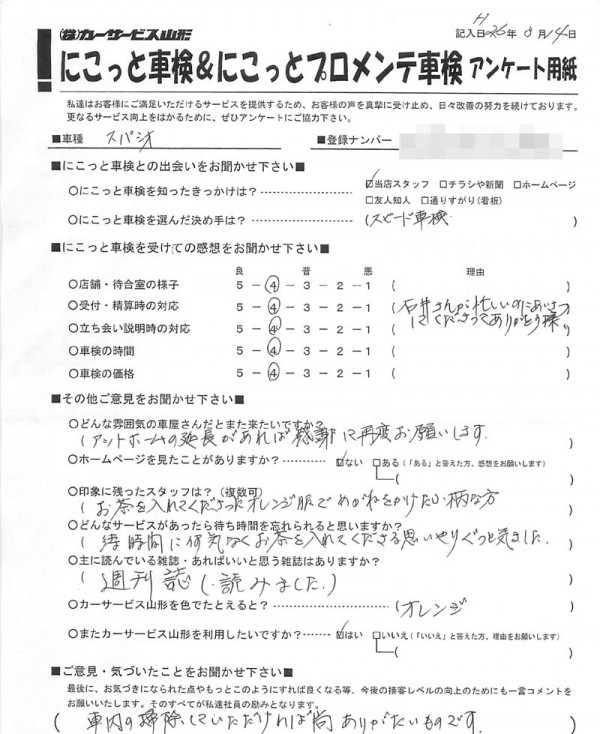 (株)カーサービス山形
記入日 H26年 8月14日
!にこっと車検&にこっとプロメンテ車検 アンケート用紙
私達はお客様にご満足いただけるサービスを提供するため、お客様の声を真摯に受け止め、日々改善の努力を続けております。
更なるサービス向上をはかるために、ぜひアンケートにご協力下さい。
■車種 スパシオ ■登録ナンバー
■にこっと車検との出会いをお聞かせ下さい■
○にこっと車検を知ったきっかけは? ☑当店スタッフ □チラシや新聞 □ホームページ
□友人知人 □通りすがり(看板)
○にこっと車検を選んだ決め手は? (スピード車検)
■にこっと車検を受けての感想をお聞かせ下さい■
良 普 悪 理由
○店舗・待合室の様子 5-④-3-2-1 ( )
○受付・精算時の対応 5-④-3-2-1 (石井さんが忙しいのにあいさつ
○立ち会い説明時の対応 5-④-3-2-1 ( してくださってありがとう様)
○車検の時間 5-④-3-2-1 ( )
○車検の価格 5-④-3-2-1 ( )
■その他ご意見をお聞かせ下さい■
○どんな雰囲気の車屋さんだとまた来たいですか?
(アットホームの延長があれば感謝に再度お願いします。
○ホームページを見たことがありますか? ☑ない □ある(「ある」と答えた方、感想をお願いします)
( )
○印象に残ったスタッフは?(複数可)
(お茶を入れてくださったオレンジ服でめがねをかけた小柄な方
○どんなサービスがあったら待ち時間を忘れられると思いますか?
(待時間に何気なくお茶を入れてくださる思いやりぐっと気ました.
○主に読んでいる雑誌・あればいいと思う雑誌はありますか?
(週刊誌(読みました.) )
○カーサービス山形を色でたとえると? (オレンジ )
○またカーサービス山形を利用したいですか? ☑はい □いいえ(「いいえ」と答えた方、理由をお願いします)
( )
■ご意見・気づいたことをお聞かせ下さい■
最後に、お気づきになられた点やもっとこのようにすれば良くなる等、今後の接客レベルの向上のためにも一言コメントを
お願いいたします。そのすべてが私達社員の励みとなります。
(車内の掃除していただければ尚ありがたいものです。 )